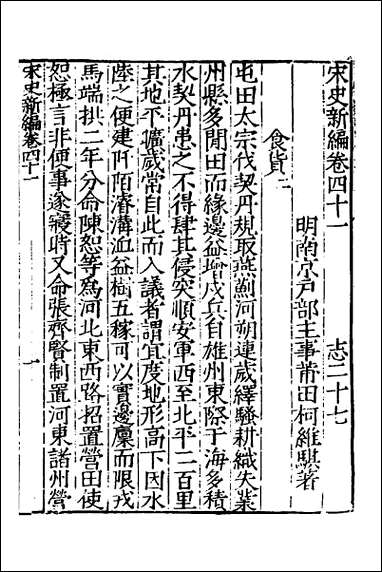 宋史新編卷四十一　志二十七
明南京戶部主事莆田柯維騏著
食貨二
屯田太宗伐契丹規取燕薊河朔連歲繹騷耕織失業
州縣多閒田而緣邊益增戍兵自雄州東際于海多積
水契丹患之不得肆其侵突順安軍西至北平二百里
其地平曠歲常自此而入議者謂宜度地形高下因水
陸之便建阡陌濬溝洫益樹五稼可以實邊廩而限戎
馬端拱二年分命陳恕等爲河北東西路招置營田使
恕極言非便事遂寢時又命張齊賢制置河東諸州營
宋史新編卷四十一　一